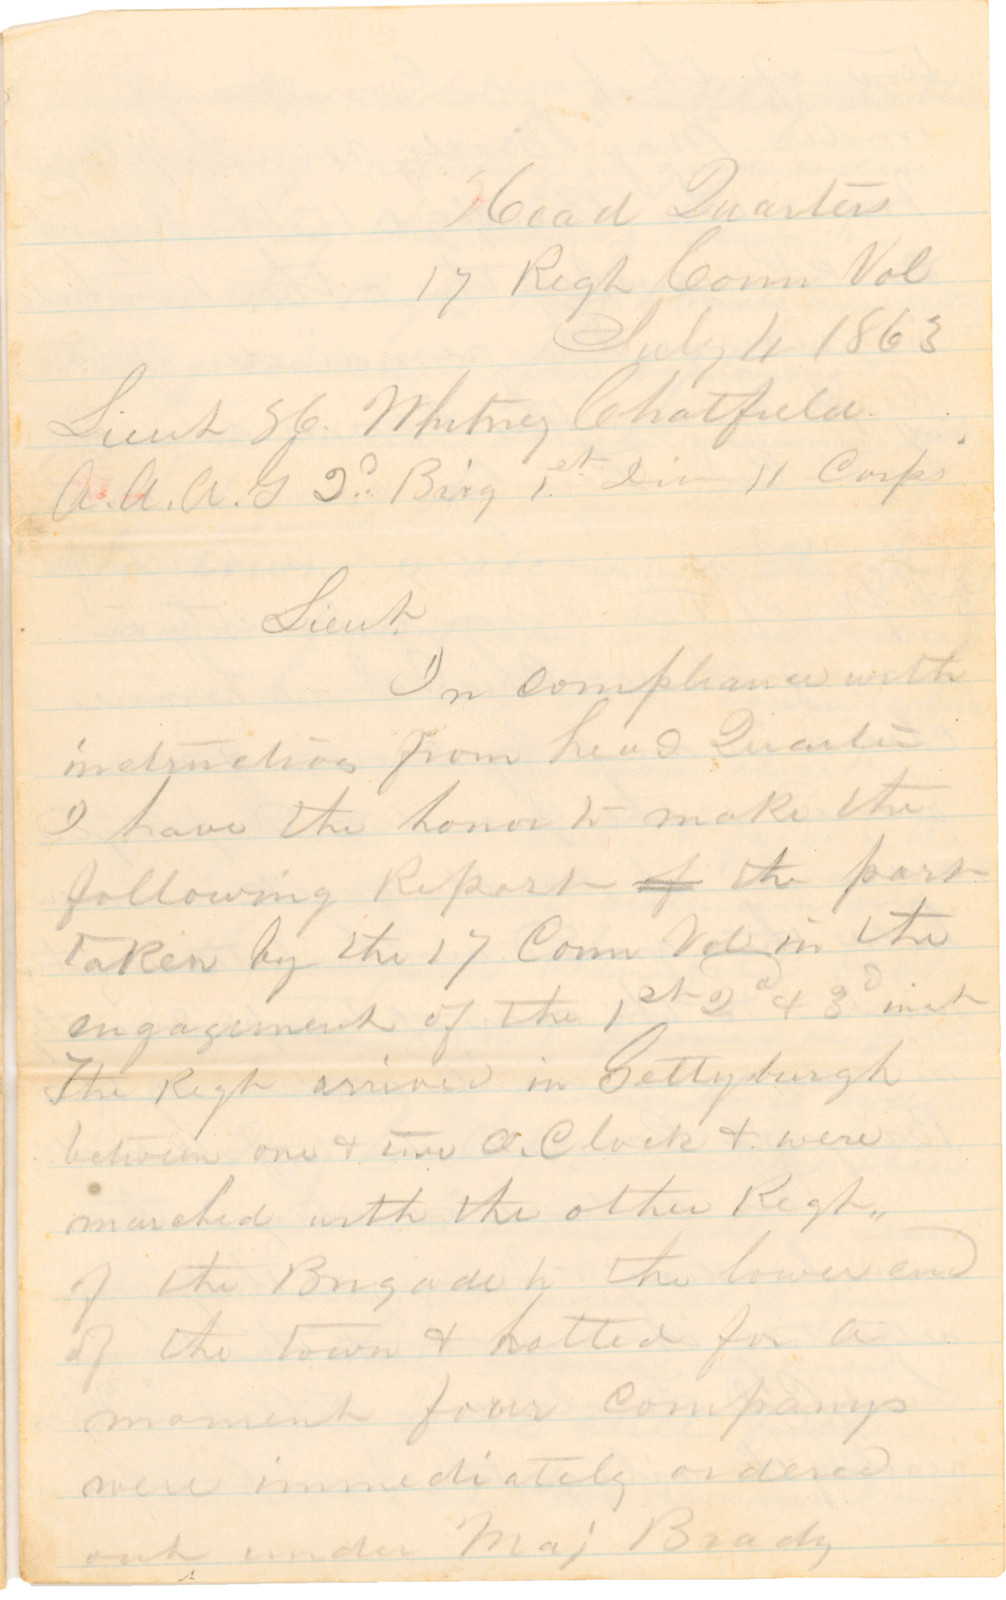 Head Quarters
17 Regt Conn Vol
July 4 1863
Lieut H. Whitney Chatfield
A.A.A.G 2d Brig 1st Div 11 Corps
Lieut
In compliance with
instructions from head Quarters
I have the honor to make the
following Report of the part
taken by the 17 Conn Vol in the
engagement of the 1st 2d & 3d inst
The Regt arrived in Gettyburgh
between one & two O.Clock & were
marched with the other Regt"
of the Brigade to the lower end
of the town & halted for a
moment four companys
were immediately ordered
out under Maj Brady